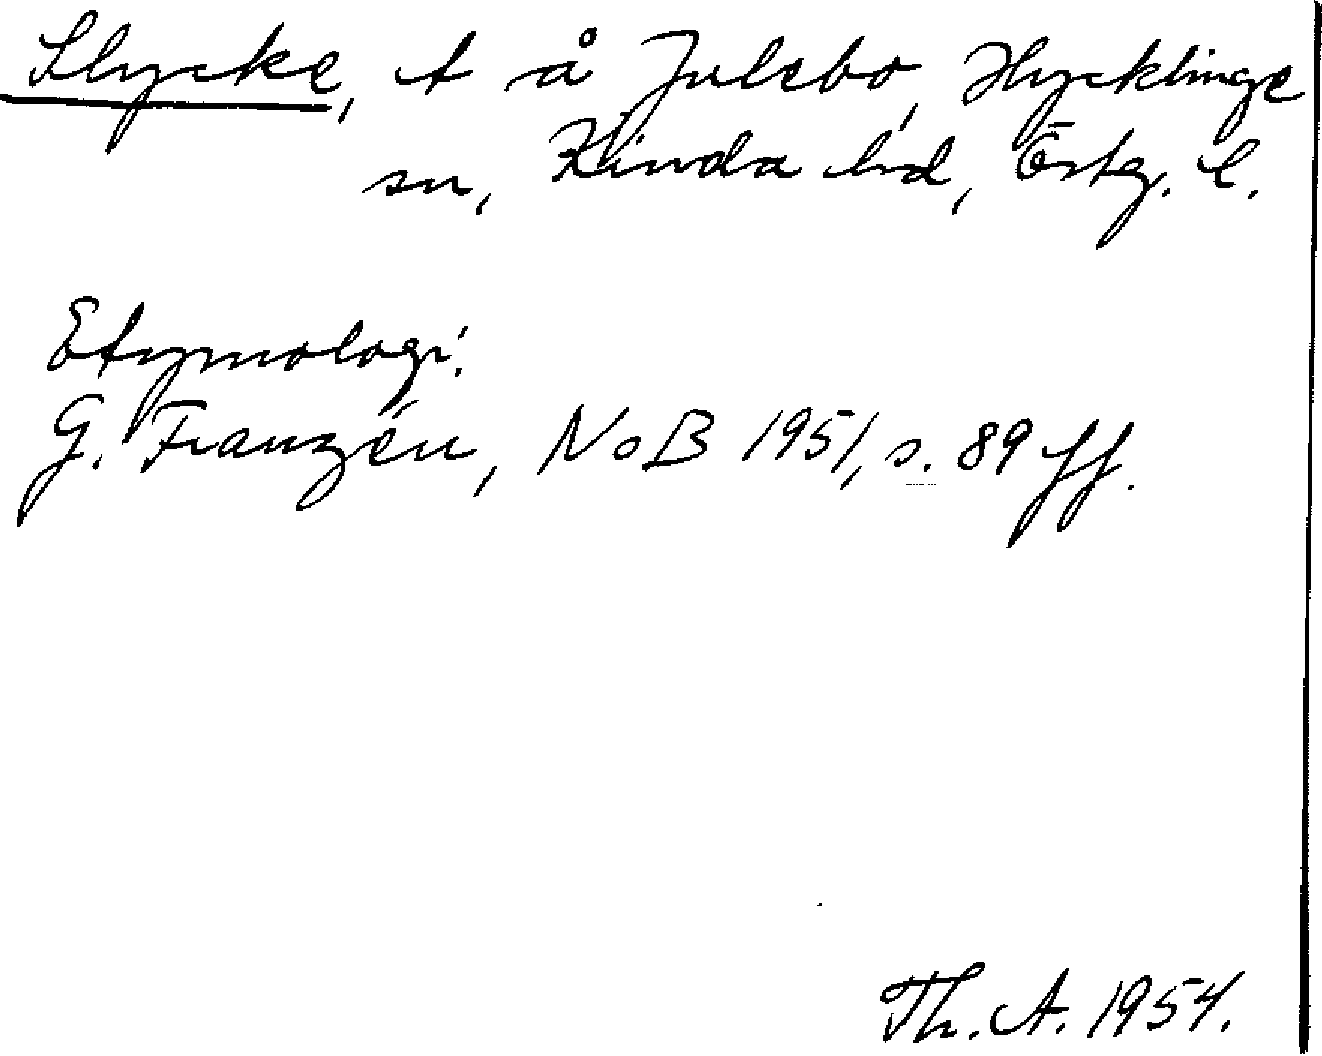 Slycke, t å Julebo, Hycklinge
sn, Kinda hd, Östg. l.
Etymologi.
G. Franzén, NoB 1951, s. 89 ff.
Th. A. 1954.